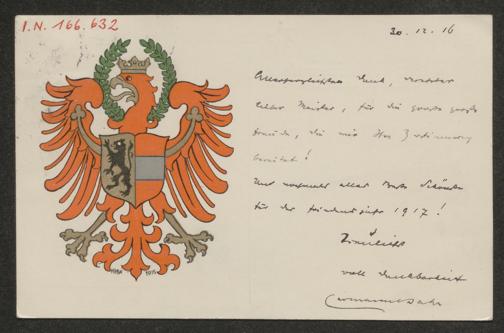 I.N. 166.632
30. 12. 16
Allerherzlichsten Dank, verehrter
lieber Meister, für die große große
Freude, die mir Ihre Zueignung
bereitet!
Und nochmals alles Gute Schönste
für das Friedensjahr 1917!
Treulichst
voll Dankbarkeit
Hermann Bahr
1916